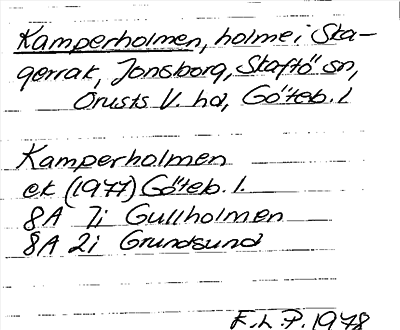 Kamperholmen, holme i Ska-
gerrak, Jonsborg, Skaftö sn,
Orusts V. hd, Göteb. l
Kamperholmen
ek (1977) Göteb. l.
8A 7i Gullholmen
8A 2i Grundsund
F.L.P. 1978